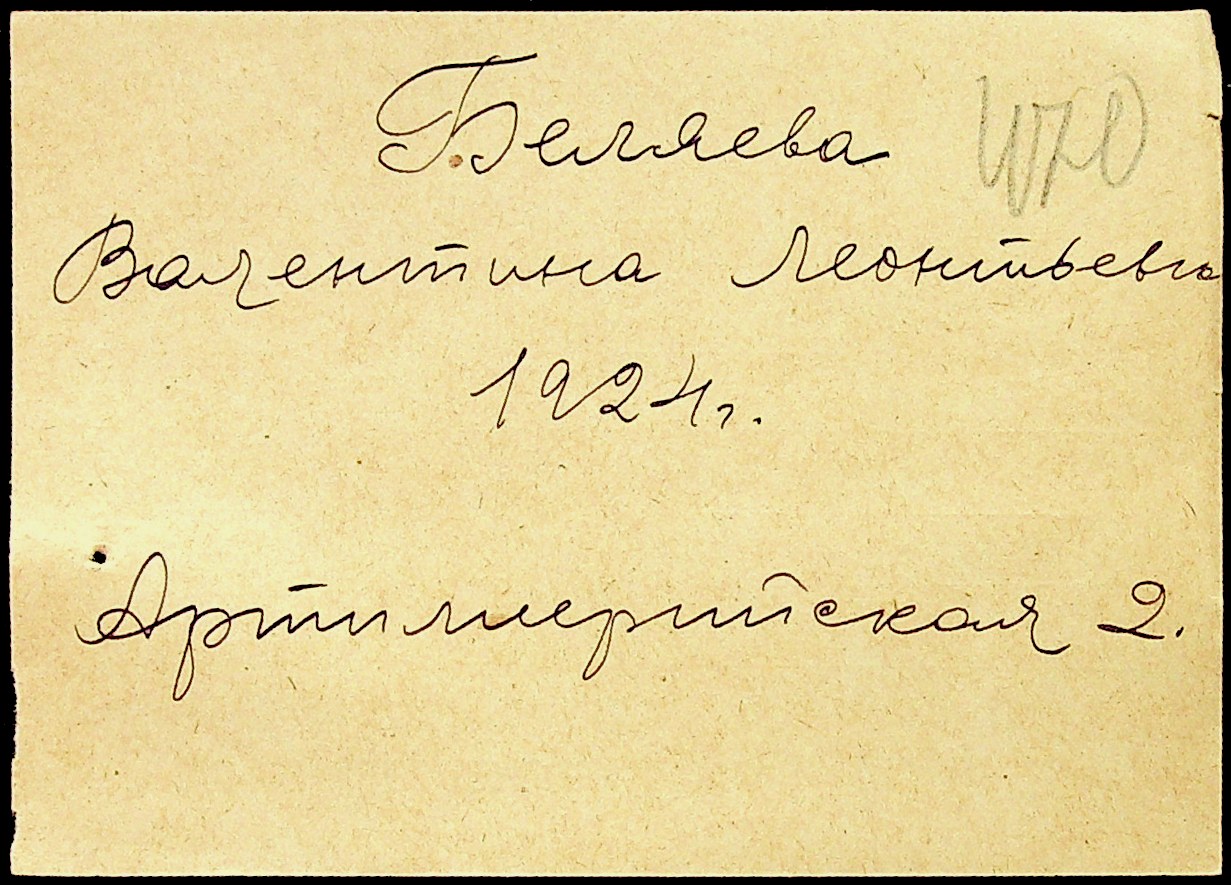 Беляева
Валентина Леонтьевна
1924 г.
Артиллерийская 2.